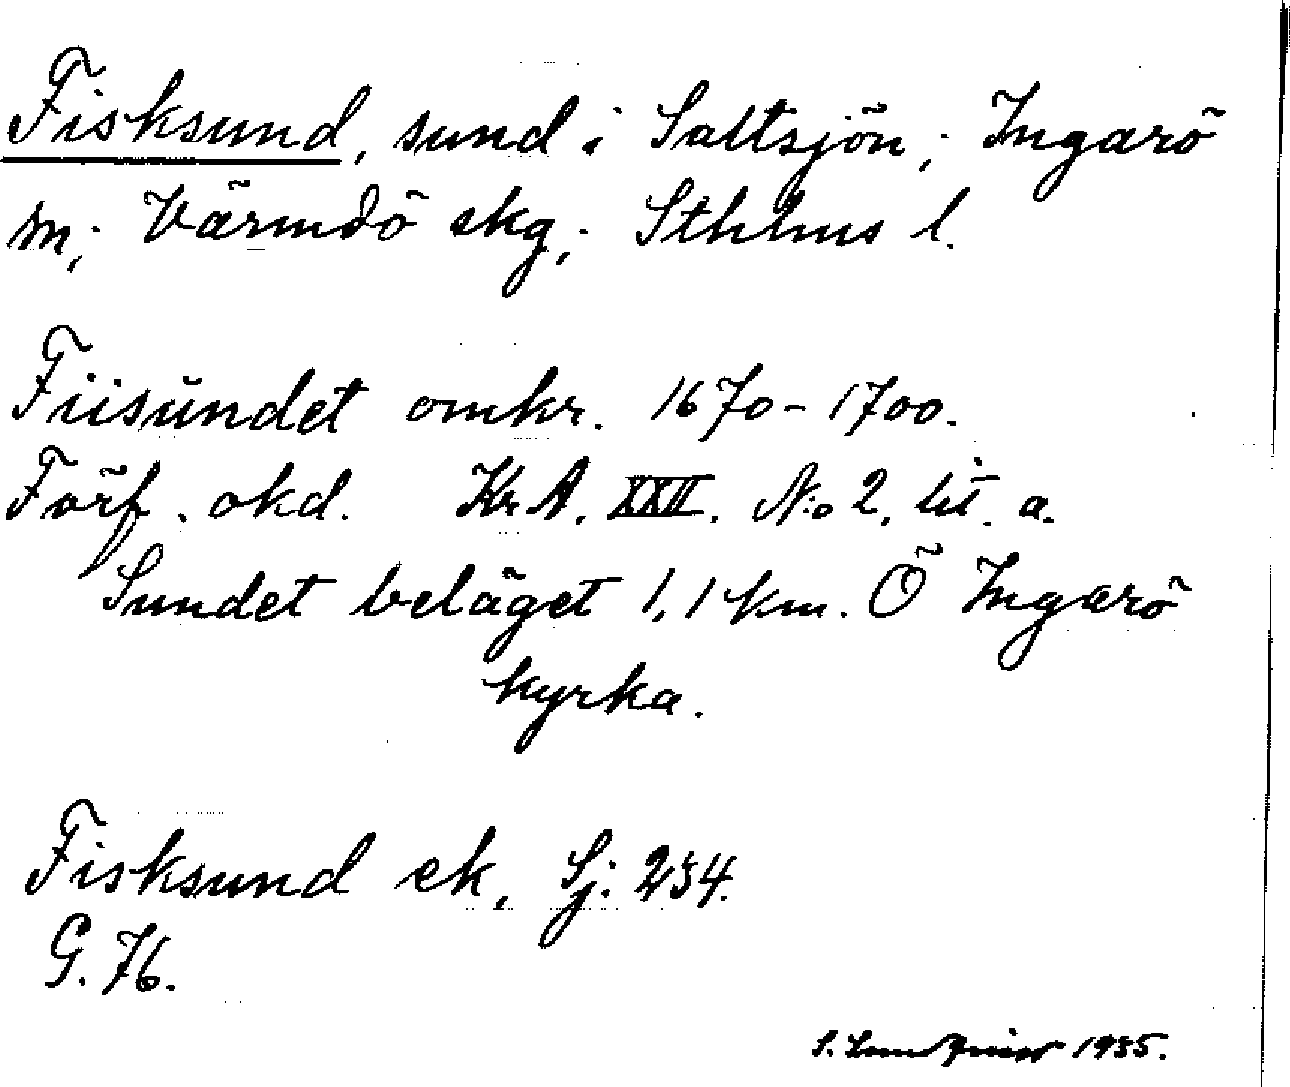 Fisksund, sund i Saltsjön, Ingarö
sn, Värmdö skg, Sthlms l.
Fiisúndet omkr. 1670-1700.
Förf. okd. Kr A. XXII. No 2, lit. a.
Sundet beläget 1,1 km. Ö Ingarö
kyrka.
Fisksund ek, Sj. 234.
G. 76.
S. Lundqvist 1935.